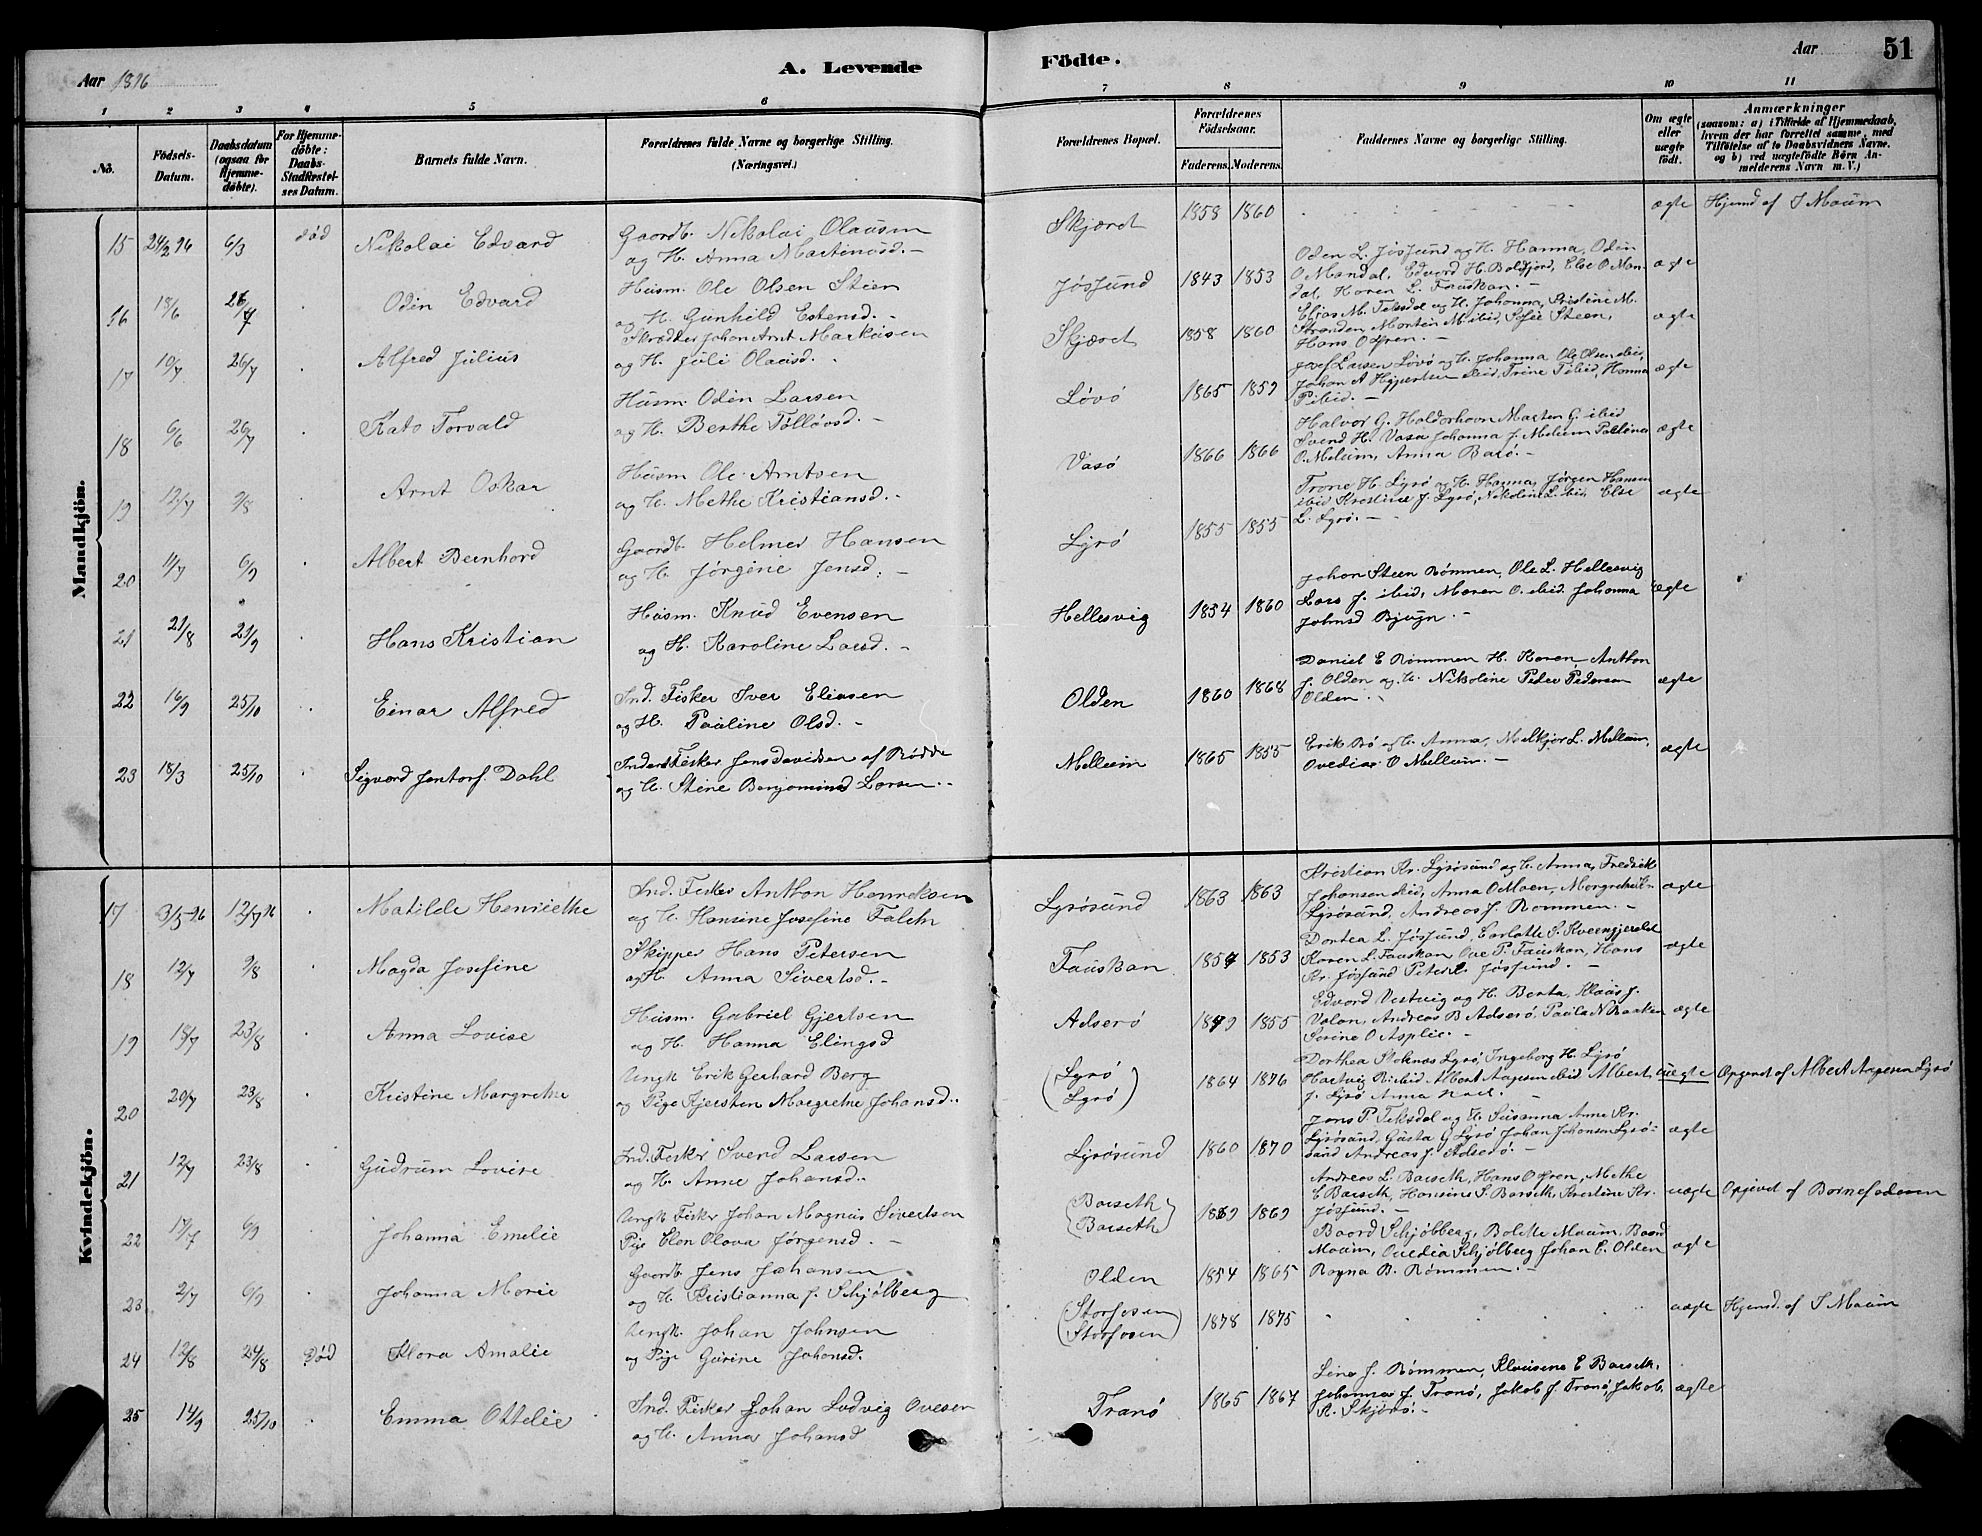 Aar 1896
A. Levende
Födte.
Aar
51
1
2
3
4
5
6
7
8
9
10
11
No.
Födsels-
Datum.
Daabsdatum
(ogsaa for
Hjemme-
döbte).
For Hjemme-
döbte:
Daabs-
Stadfæstel-
ses Datum.
Barnets fulde Navn.
Forældrenes fulde Navne og borgerlige Stilling.
(Næringsvei.)
Forældrenes Bopæl.
Forældrenes
Födselsaar.
Faderens.
Moderens.
Faddernes Navne og borgerlige Stilling.
Om ægte
eller
uægte
födt.
Anmærkninger
(saasom: a) i Tilfælde af Hjemmedaab,
hvem der har forrettet samme, med
Tilföielse af to Daabsvidners Navne.
og b) ved uægtefödte Börn An-
melderens Navn m.V.)
Mandkjön.
15 24/2 96 6/3 død Nikolai Edvard
Gaardb. Nikolai Olausen
og H. Anna Martinusd.-
Skjæret 1858 1860 ægte Hjemd af S Maum
16 18/6 26/7 Odin Edvard
Husm. Ole Olsen Steen
og H. Gunhild Estensd.-
Jøssund 1843 1853
Oden L. Jøssund og H. Hanna, Odin
O Mandal, Edvard H. Boldfjord, Else O Man-
dal, Karen L. Fauskan.-
ægte
17 10/7 26/7 Alfred Julius
Skrædder Johan Arnt Markusen
og H. Juli Olausd.
Skjæret 1858 1860
Elias M. Teksdal og H. Johanna, Kristine M.
Stranden, Morten M. ibid, Sofie Steen,
Hans Ofren.-
ægte
18 6/6 26/7 Kato Torvald
Husm. Odin Larsen
og H. Berthe Tølløvsd.-
Løvø 1865 1859
Josef Larsen Løvø og H. Johanna Ole Olsen ibid,
Johan A Hjjertsen ibid, Trine T ibid, Hanna
P ibid.-
ægte
19 12/7 9/8 Arnt Oskar
Husm Ole Arntsen
og H. Methe Kristiansd.-
Vasø 1866 1866
Halvor G. Halderhavn Marten G. ibid
Svend H. Vasø Johanna J. Melum Pauline
O. Melum, Anna Barø.-
ægte
20 11/7 6/9 Albert Bernhard
Gaardb. Helmer Hansen
og H. Jørgine Jensd.-
Lyrø 1855 1855
Trone H. Lyrø og H. Hanna, Jørgen Hansen
ibid Kristine J. Lyrø, Nikoline L. ibid, Else
L. Lyrø.-
ægte
21 21/8 21/9 Hans Kristian
Husm. Knud Evensen
og H. Karoline Larsd.-
Hellesvig 1854 1860
Johan Steen Rømmen, Ole L. Hellesvig
Lars J. ibid, Maren O. ibid. Johanna
Johnsd Bjugn.-
ægte
22 16/9 25/10 Einar Alfred
Ind. Fisker Iver Eliasen
og H. Pauline Olsd.-
Olden 1860 1868
Daniel E Rømmen H. Karen, Anthon
J. Olden og H. Nikoline Peder Pedersen
Olden.-
ægte
23 18/3 25/10 Sigvard Jentorf. Dahl
Inderst Fisker Jens Davidsen af Rødde
og H. Stine Benjamind Larsen.-
Mellum 1865 1855
Erik Bø og H. Anna, Melkjor L. Mellum,
Ovedias O Mellum.-
ægte
Kvindekjön.
17 3/5 96 12/7 96 Matilde Henriette
Ind. Fisker Anthon Henriksen
og H. Hansine Josefine Falch
Lysøsund 1863 1863
Kristian Kr. Lysøsund og H. Anna, Fredrik
Johansen ibid, Anna O Moen, Margrethe
Lysøsund, Andreas J. Rømmen.-
ægte
18 12/7 9/8 Magda Josefine
Skipper Hans Petersen
og H. Anna Sivertsd.-
Fauskan 1857 1853
Dortea L. Jøssund, Carlotte S. Kveengjerdet
Karen L. Fauskan Ove P. Fauskan, Hans
Kr. Jøssund Peter L. Jøssund.-
ægte
19 18/7 23/8 Anna Lovise
Husm. Gabriel Gjertsen
og H. Hanna Elingsd
Adserø 1849 1855
Edvard Vestvig og H. Berta, Klaus J.
Valan, Andreas B Adserø, Paula N Braaken
Serine O Asplie.-
ægte
20 20/7 23/8 Kristine Margrethe
Ungk Erik Gerhard Berg
og Pige Kjersten Margrethe Johansd..
(Lyrø
Lyrø)
1864 1876
Dorthea Stoknes Lyrø, Ingeborg H. Lyrø
Hartvig B ibid, Albert Aagesen ibid Albert
J. Lyrø Anna
uægte Opgivet af Albert Aagesen Lyrø
21 12/7 23/8 Gudrun Lovise
Ind. Fisker Svend Larsen
og H. Anne Johansd..
Lysøsund 1860 1870
Jens P Teksdal og H. Susanna Anne Kr.
Lysøsund, Gusta G Lyrø Johan Johansen Lysø-
sund Andreas J. Adserø.-
ægte
22 17/7 6/9 Johanna Emelie
Ungk Fisker Johan Magnus Sivertsen
Pige Elen Olava Jørgensd.-
(Barseth
Barseth)
1869 1869
Andreas L. Barseth, Hans Ofren, Methe
E Barseth, Hansine S. Barseth Kristine Kr.
Jøssund.-
uægte Opgivet af Barnefaderen
23 2/7 6/9 Johanna Marie
Gaardb. Jens Johansen
og H. Kristianna J. Schjølberg
Olden 1854 1865
Baard Schjølberg, Bolette Maum, Baard
Maum, Ovedia Schjølberg Johan E. Olden
Ragna B. Rømmen.-
ægte
24 12/8 24/8 Død Klara Amalie
Ungk. Johan Johnsen
og Pige Gurine Johansd.
(Storfosen
Storfosen)
1878 1875 uægte Hjemd. af S Maum
25 14/9 25/10 Emma Ottelie
Ind. Fisker Johan Ludvig Ovesen
og H. Anna Johansd
Tranø 1865 1867
Line J. Rømmen, Klausine E Barseth,
Johannes J. Tranø, Jakob J. Tranø, Jakob
A. Skjærø.-
ægte